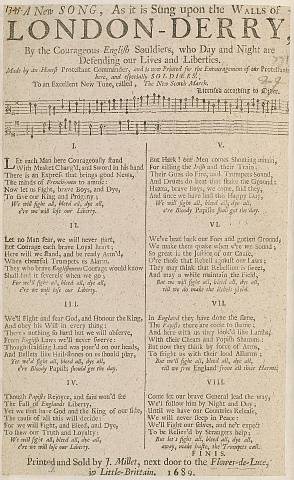 A New SONG, As it is Sung upon the WALLS of
LONDON-DERRY,
By the Couragious English Souldiers, who Day and Night are
Defending our Lives and Liberties.
Made by an Honest Protestant Commander, and is now Printed for the Encouragement of the Protestants
here, and especially SOLDIERS.
To an Excellent New Tune, called, The New Scotch March.
Licensed according to Order.
I.
LEt each Man here Couragiously stand
With Musket Charg'd, and Sword in his hand
There is an Express that brings good News,
The minds of to amuse:
Now let us Fight, brave Boys, and Dye,
To save our King and Progeny;
We will fight all, bleed all, dye all,
E're we will lose our Liberty.
II.
Let no Man fear, we will never part,
But Cottage each brave Loyal heart;
Here will we Stand, and be ready Arm'd,
When chearful Trumpets is Alarm.
They who brave Courage would know
Shall find it fiercely when we go;
For we'll fight all, bleed all, dye all,
E're we will lose our Liberty.
III.
We'll Fight and fear God, and Honour the King,
And obey his Will in every thing;
There's nothing so hard but we will observe,
From English Laws we'll never swerve:
Though should lay was pour'd on our heads,
And Bullets like Hailstones on us should play,
Yet we'll fight all, bleed all, dye all,
E're Bloody Papists should get the day.
IV.
Though Papists Rejoyce, and fain wou'd see
The Fall of England's Liberty,
Yet we that have God and the King of our side,
The cause of all this will decide:
For we will Fight, and Bleed, and Dye,
To shew our Truth and Loyalty:
We will fight all, bleed all, dye all,
E're we will lose our Liberty.
V.
But Hark! our Men comes Shouting amain,
For killing the Irish and their Train;
Their Guns do Fire, and Trumpets Sound,
And Drums do beat that shake the Ground:
Huzza, brave Boys, we come, said they,
And since we have had this Happy Day,
We will fight all, bleed all, dye all,
E're Bloody Papists shall get the day.
VI.
We've beat back our Foes and gotten Ground,
We make them quake when e're we Sound;
So great is the Justice of our Cause,
O're those that Rebell against our Laws:
They may think that Rebellion is secure,
And may a while maintain the Field,
But we will fight all, bleed all, dye all,
till we do make the Rebels yield.
VII.
In England they have done the same,
The Papists there are come to shame;
And here with us they look'd like Lambs,
With their Cheats and Popish Shamms:
But now they think by force of Arms,
To fright us with their loud Allarms;
But we'll fight all, bleed all, dye all,
till we free England from all their Harms.
VIII.
Come let our brave General lead the way,
We'll follow him by Night and Day;
Until we have our Countries Releast,
We will never sleep in Peace:
We'll Fight our selves, and ne'r expect
To be Reliev'd by Strangers help;
But let's fight all, bleed all, dye all,
away, make haste, the Trumpets call.
FINIS.
Printed and Sold by J. Millet, next door to the Flower-de-Luce,
in Little-Brittain. 1689.